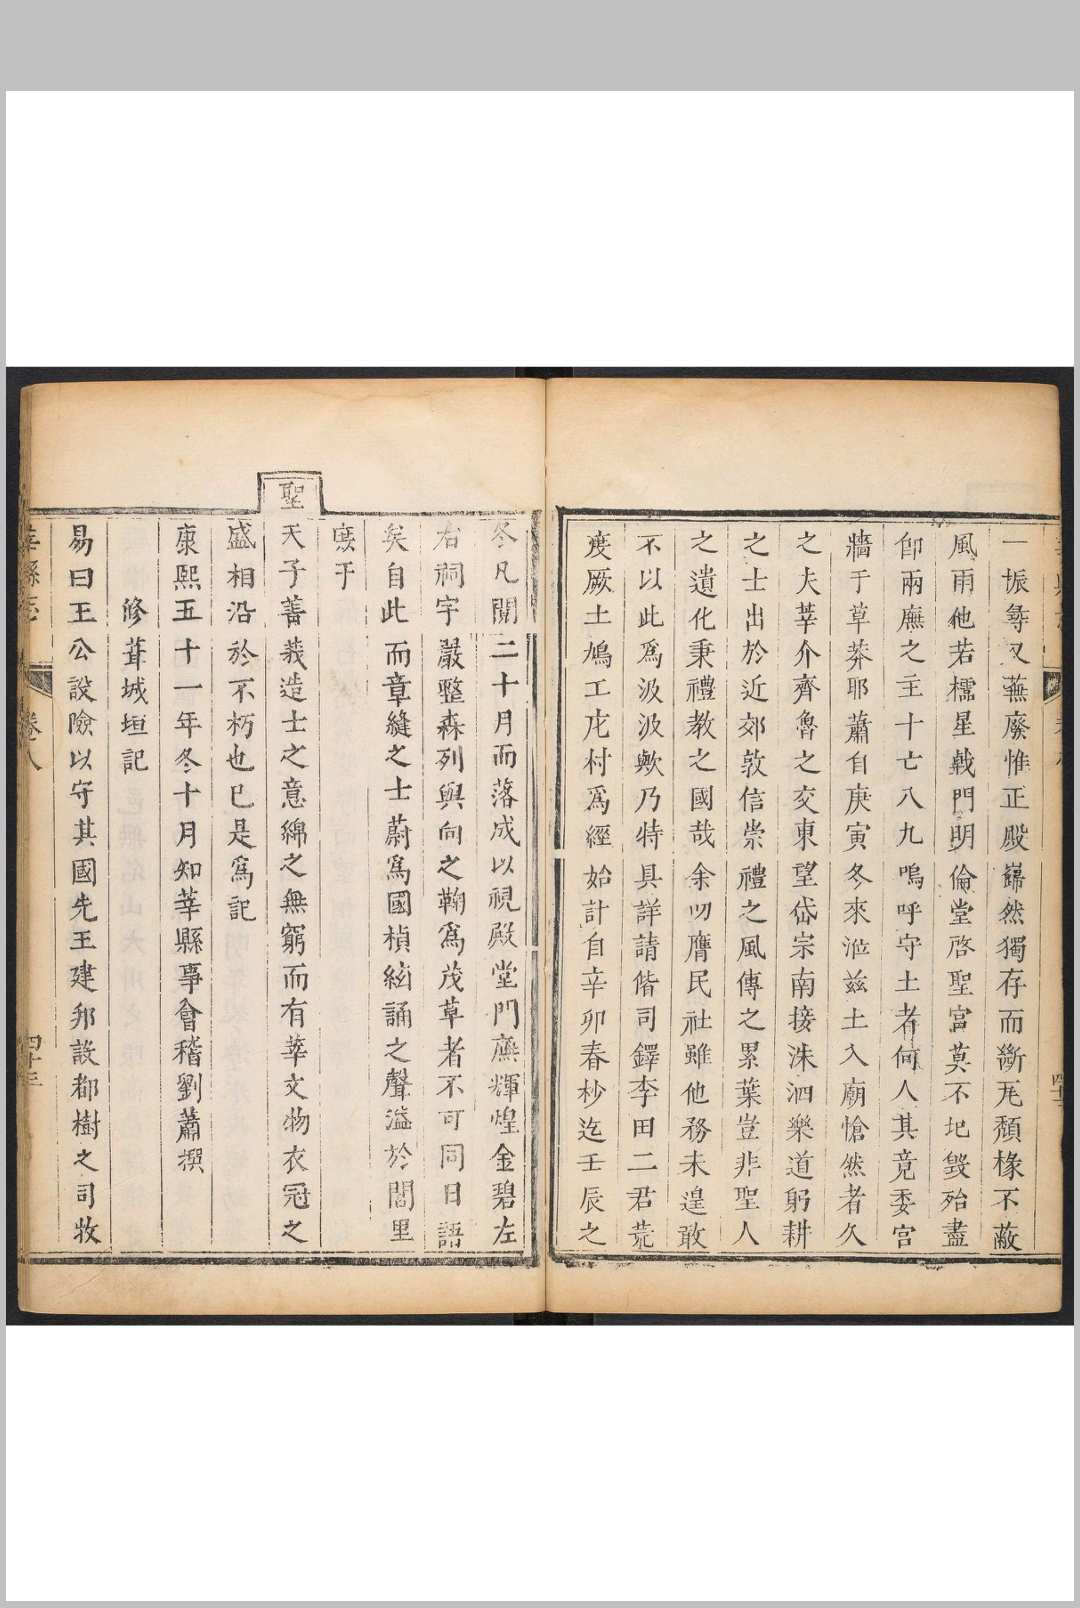 一振尋又蕪廢惟正殿巋然獨存而斷瓦頹椽不蔽
風雨他若櫺星戟門明倫堂啓聖宮莫不圮毁殆盡
卽兩廡之主十亡八九嗚呼守土者何人其竟委宮
牆于草莽耶蕭自庚寅冬來涖兹土入廟愴然者久
之夫莘介齊魯之交東望岱宗南接洙泗樂道躬耕
之士出於近郊敦信崇禮之風傳之累葉豈非聖人
之遺化秉禮教之國哉余叨膺民社雖他務未遑敢
不以此爲汲汲歟乃特具詳請偕司鐸李田二君荒
度厥土鳩工庀村爲經始計自辛卯春杪迄壬辰之
冬凡閱二十月而落成以視殿堂門廡輝煌金碧左
右祠宇嚴整森列與向之鞠爲茂草者不可同日語
矣自此而章縫之士蔚爲國楨絃誦之聲溢於閭里
庶于
聖天子菁莪造士之意綿之無窮而有莘文物衣冠之
盛相沿於不朽也已是爲記
康熙五十一年冬十月知莘縣事會稽劉蕭撰
修葺城垣記
易曰王公設險以守其國先王建邦設都樹之司牧
莘縣志
卷八
四十三